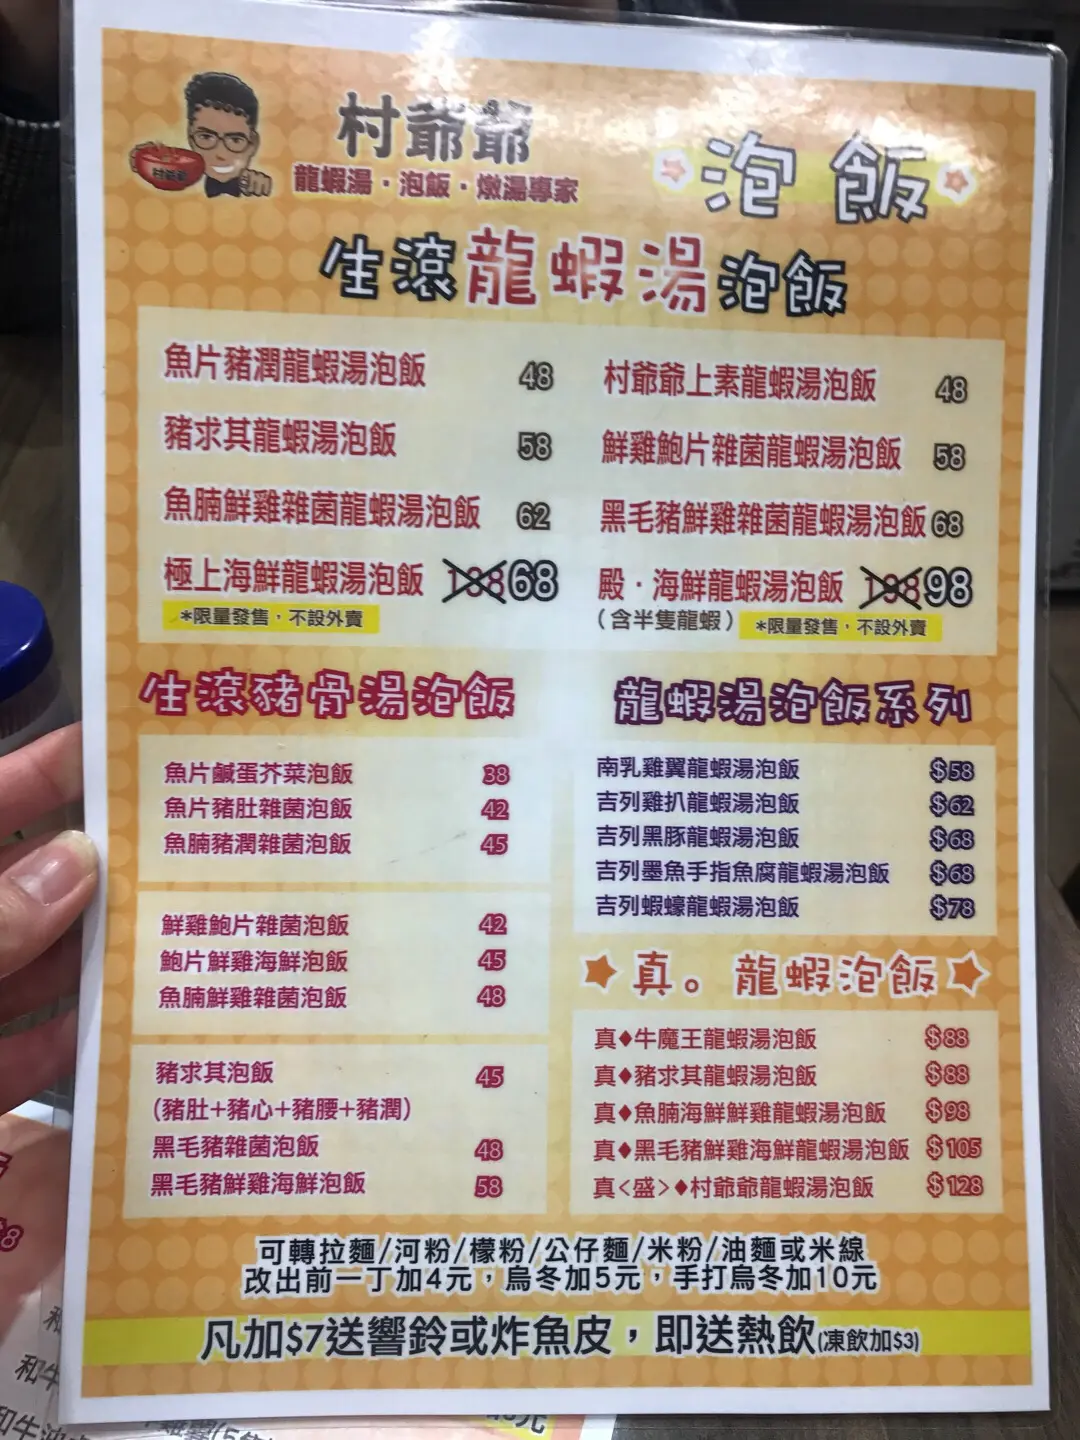 村爺爺
村爺爺
龍蝦湯·泡飯·燉湯專家
泡飯
生滾龍蝦湯泡飯
魚片豬潤龍蝦湯泡飯 48
豬求其龍蝦湯泡飯 58
魚腩鮮雞雜菌龍蝦湯泡飯 62
極上海鮮龍蝦湯泡飯 68
*限量發售,不設外賣
村爺爺上素龍蝦湯泡飯 48
鮮雞鮑片雜菌龍蝦湯泡飯 58
黑毛豬鮮雞雜菌龍蝦湯泡飯 68
殿·海鮮龍蝦湯泡飯 198 98
(含半隻龍蝦) *限量發售,不設外賣
生滾豬骨湯泡飯
魚片鹹蛋芥菜泡飯 38
魚片豬肚雜菌泡飯 42
魚腩豬潤雜菌泡飯 45
鮮雞鮑片雜菌泡飯 42
鮑片鮮雞海鮮泡飯 45
魚腩鮮雞雜菌泡飯 48
豬求其泡飯 45
(豬肚+豬心+豬腰+豬潤)
黑毛豬雜菌泡飯 48
黑毛豬鮮雞海鮮泡飯 58
龍蝦湯泡飯系列
南乳雞翼龍蝦湯泡飯 $58
吉列雞扒龍蝦湯泡飯 $62
吉列黑豚龍蝦湯泡飯 $68
吉列墨魚手指魚腐龍蝦湯泡飯 $68
吉列蝦蠔龍蝦湯泡飯 $78
真。龍蝦泡飯
真♦牛魔王龍蝦湯泡飯 $88
真♦豬求其龍蝦湯泡飯 $88
真♦魚腩海鮮鮮雞龍蝦湯泡飯 $98
真♦黑毛豬鮮雞海鮮龍蝦湯泡飯 $105
真<盛>♦村爺爺龍蝦湯泡飯 $128
可轉拉麵/河粉/檬粉/公仔麵/米粉/油麵或米線
改出前一丁加4元,烏冬加5元,手打烏冬加10元
凡加$7送響鈴或炸魚皮,即送熱飲(凍飲加$3)